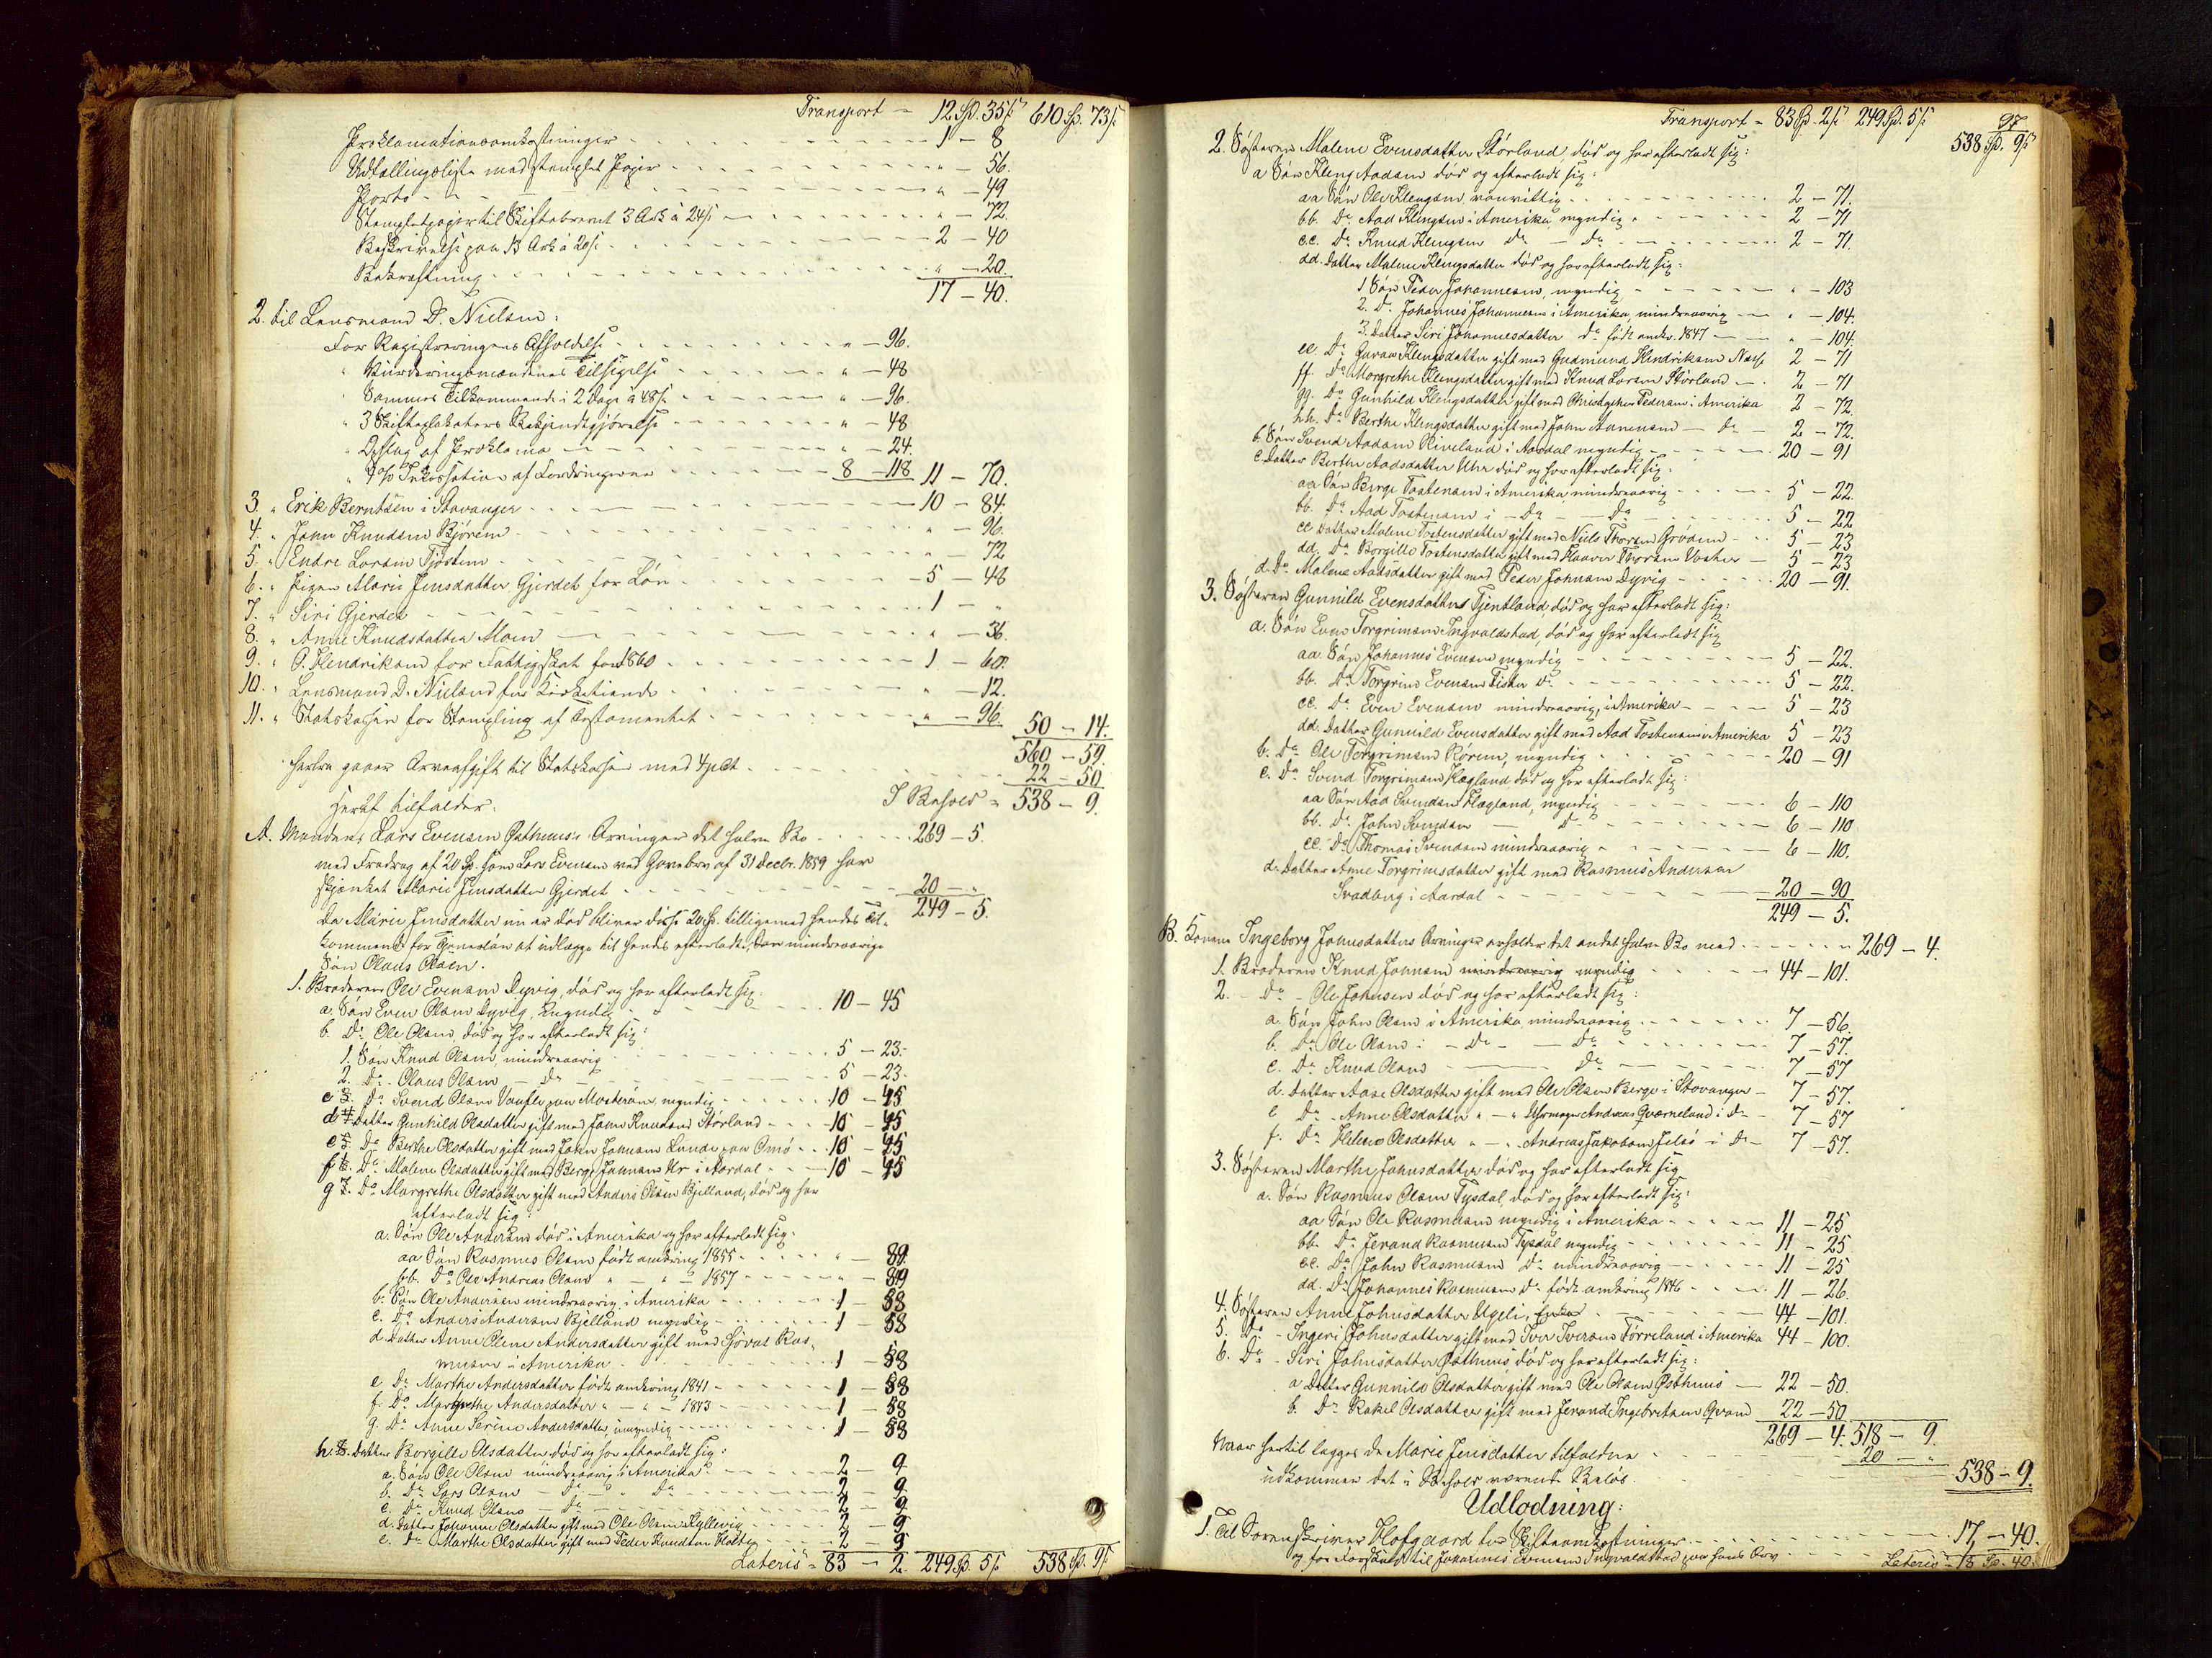 Transport - 12 Sp. 35 ß 610 Sp. 73 ß
Proklamationsomkostninger - 1 - 8
Udtællingsliste med stemplet Papir - " - 56.
Porto - " - 49
Stempletpapir til Skiftebrevet 3 Ark à 24 ß - " - 72.
Beskrivelse paa 13 Ark à 20 ß - 2 - 40
Bekræftning - " - 20.
17 - 40.
2. til Lensmand D. Nielsen:
For Registreringens Afholdelse - " - 96.
" Vurderingsmændenes Tilsigelse - " - 48
" Sammes Tilkommende i 2 Dage à 48 ß - " - 96.
" 3 Skifteplakaters Bekjendtgjørelse - " - 48
" Opslag af Proklama - " - 24.
" 4 % Inkassation af Fordringerne - 8 - 118 11 - 70.
3. " Erik Berntsen i Stavanger - 10 - 84.
4. " John Knudsen Bjørem - " - 96.
5. " Endre Larsen Fjostem - " - 72
6. " Pigen Marie Jensdatter Gjerdet for Løn - 5 - 48
7. " Siri Gjerdet - 1 - "
8. " Anne Knudsdatter Moen - " - 36.
9. " O. Hendriksen for Fattigskat for 1860 - 1 - 60.
10. " Lensmand D. Nieland for Kirketiende - " - 12.
11. " Statskassen for Stempling af Testamentet - " - 96. 50 - 14.
560 - 59.
Herfra gaaer Arveafgift til Statskassen med 4 pCt - 22 - 50.
I Behold - 538 - 9.
Heraf tilfalder:
A. Manden Lars Evensen Østhuus's Arvinger det halve Bo - 269 - 5.
med Fradrag af 20 Sp. som Lars Evensen ved Gavebrev af 31 Decbr. 1859 har
skjænket Marie Jensdatter Gjerdet - 20 - "
249 - 5.
Da Marie Jensdatter nu er død bliver disse 20 Sp. tilligemed hendes Til-
kommende for Tjenestløn at udlægge til hendes efterladte, Søn mindreaarige
Søn Olaus Olsen.
1. Broderen Ole Evensen Dyvig, død og har efterladt sig:
a. Søn Even Olsen Dyvig, myndig - 10 - 45
b. Do Ole Olsen, død og har efterladt sig:
1. Søn Knud Olsen, mindreaarig - 5 - 23.
2. Do - Olaus Olsen - Do - 5 - 23.
c 3. Do Svend Olsen Vaufle paa Mosterøen, myndig - 10 - 45
d 4 Datter Gunhild Olsdatter gift med John Knudsen Størland - 10 - 45
e 5. Do Berthe Olsdatter gift med John Johnsen Lunde paa Omø - 10 - 45
f 6. Do Malene Olsdatter gift med Berge Johnsen Ur i Aardal - 10 - 45
g 7. Do Margrethe Olsdatter gift med Anders Olsen Bjelland, død og har
efterladt sig:
a. Søn Ole Andersen død i Amerika og har efterladt sig:
aa Søn Rasmus Olsen født omkring 1855 - " - 89.
bb. Do Ole Andreas Olsen " - " - 1857 - " - 89
b. Søn Ole Andersen mindreaarig, i Amerika - 1 - 58
c. Do Anders Andersen Bjelland myndig - 1 - 58
d. Datter Anne Olene Andersdatter gift med Sjovat Ras-
musen i Amerika - 1 - 58
e Do Marthe Andersdatter født omkring 1841 - 1 - 58
f. Do Margrethe Andersdatter " - " - 1843 - 1 - 58
g. Do Anne Serine Andersdatter, umyndig - 1 - 58
h 8. Datter Borgille Olsdatter død og har efterladt sig:
a. Søn Ole Olsen mindreaarig i Amerika - 2 - 9
b. Do Lars Olsen - Do - Do - 2 - 9.
c. Do Knud Olsen - Do - 2 - 9.
d. Datter Johanne Olsdatter gift med Ole Olsen Kyllevig - 2 - 9
e. Do Marthe Olsdatter gift med Peder Knudsen Holte - 2 - 9
Lateris - 83 - 2. 249 Sp. 5 ß 538 Sp. 9 ß
97
Transport - 83 Sp. 2 ß 249 Sp. 5 ß 538 Sp. 9 ß
2. Søsteren Malene Evensdatter Størland, død og har efterladt sig:
a Søn Kleng Aadsen død og efterladt sig:
aa Søn Ole Klengsen, vanvittig - 2 - 71.
bb. Do Aad Klengsen i Amerika, myndig - 2 - 71
cc. Do Knud Klengsen Do - Do - 2 - 71.
dd. Datter Malene Klengsdatter død og har efterladt sig:
1 Søn Peder Johannesen, myndig - " - 103
2. Do Johannes Johannesen i Amerika, mindreaarig - " - 104.
3. Datter Siri Johannesdatter Do født omkr. 1847 - " - 104.
ee Do Guroe Klengsdatter gift med Gudmund Hendriksen Næs - 2 - 71
ff. Do Margrethe Klengsdatter gift med Knud Larsen Størland - 2 - 71
gg. Do Gunhild Klengsdatter gift med Christopher Pedersen i Amerika 2 - 72.
hh. Do Berthe Klengsdatter gift med John Aanensen - Do - 2 - 72.
b. Søn Svend Aadsen Riveland i Aardal myndig - 20 - 91
c. Datter Berthe Aadsdatter Uhr død og har efterladt sig:
aa Søn Berge Tostensen i Amerika mindreaarig - 5 - 22.
bb. Do Aad Tostensen i - Do - Do - 5 - 22
cc Datter Malene Tostensdatter gift med Niels Thorsen Grødem - 5 - 23
dd. Do Borgille Tostensdatter gift med Haaver Thorsen - 5 - 23
d. Do Malene Aadsdatter gift med Peder Johnsen Dyvig - 20 - 91.
3. Søsteren Gunnild Evensdatter Tjentland, død og har efterladt sig:
a. Søn Even Torgrimsen Ingvaldstad, død og har efterladt sig
aa. Søn Johannes Evensen myndig - 5 - 22.
bb. Do Torgrim Evensen Fister Do - 5 - 22.
cc. Do Even Evensen mindreaarig, i Amerika - 5 - 23
dd. Datter Gunnild Evensdatter gift med Aad Tostensen i Amerika 5 - 23
b. Do Ole Torgrimsen Rørem, myndig - 20 - 91
c. Do Svend Torgrimsen Hægland død og har efterladt sig:
aa Søn Aad Svendsen Hægland, myndig - 6 - 110
bb. Do John Svendsen - Do - 6 - 110
cc. Do Thomas Svendsen mindreaarig - 6 - 110.
d. Datter Anne Torgrimsdatter gift med Rasmus Andersen
Svadberg i Aardal - 20 - 90
249 - 5.
B. Konen Ingeborg Johnsdatters Arvinger erholder det andet halve Bo med - 269 - 4.
1. Broderen Knud Johnsen mindreaarig myndig - 44 - 101.
2. - Do - Ole Johnsen død og har efterladt sig:
a. Søn John Olsen i Amerika, mindreaarig - 7 - 56.
b. Do Ole Olsen i - Do - Do - 7 - 57.
c. Do Knud Olsen - Do - 7 - 57
d. Datter Aase Olsdatter gift med Ole Olsen Berge i Stavanger - 7 - 57.
e Do - Anne Olsdatter " - " Uhrmager Andreas Qværneland i Do - 7 - 57
f. Do Helene Olsdatter " - " Andreas Jakobsen Jelsø i Do - 7 - 57.
3. Søsteren Marthe Johnsdatter død og har efterladt sig
a. Søn Rasmus Olsen Tysdal, død og har efterladt sig:
aa Søn Ole Rasmusen myndig i Amerika - 11 - 25
bb. Do Jerand Rasmusen Tysdal myndig - 11 - 25
cc. Do John Rasmusen Do mindreaarig - 11 - 25
dd. Do Johannes Rasmusen Do født omkring 1846 - 11 - 26.
4. Søsteren Anne Johnsdatter Ugeli, Enke - 44 - 101.
5. Do - Ingeri Johnsdatter gift med Iver Iversen Tørreland i Amerika 44 - 100.
6. Do - Siri Johnsdatter Østhuus død og har efterladt sig:
a Datter Gunnild Olsdatter gift med Ole Olsen Østhuus - 22 - 50.
b. Do Rakel Olsdatter gift med Jerand Ingebretsen Qvam 22 - 50
269 - 4. 518 - 9.
Naar hertil lægges de Marie Jensdatter tilfaldne - 20 - "
udkommer det i Behold værende Beløb - 538 - 9.
Udlodning:
1. Til Sorenskriver Hofgaard for Skifteomkostninger - 17 - 40.
og for til Johannes Evensen Ingvaldstad paa hans Arv
Lateris - 18 Sp. 40.